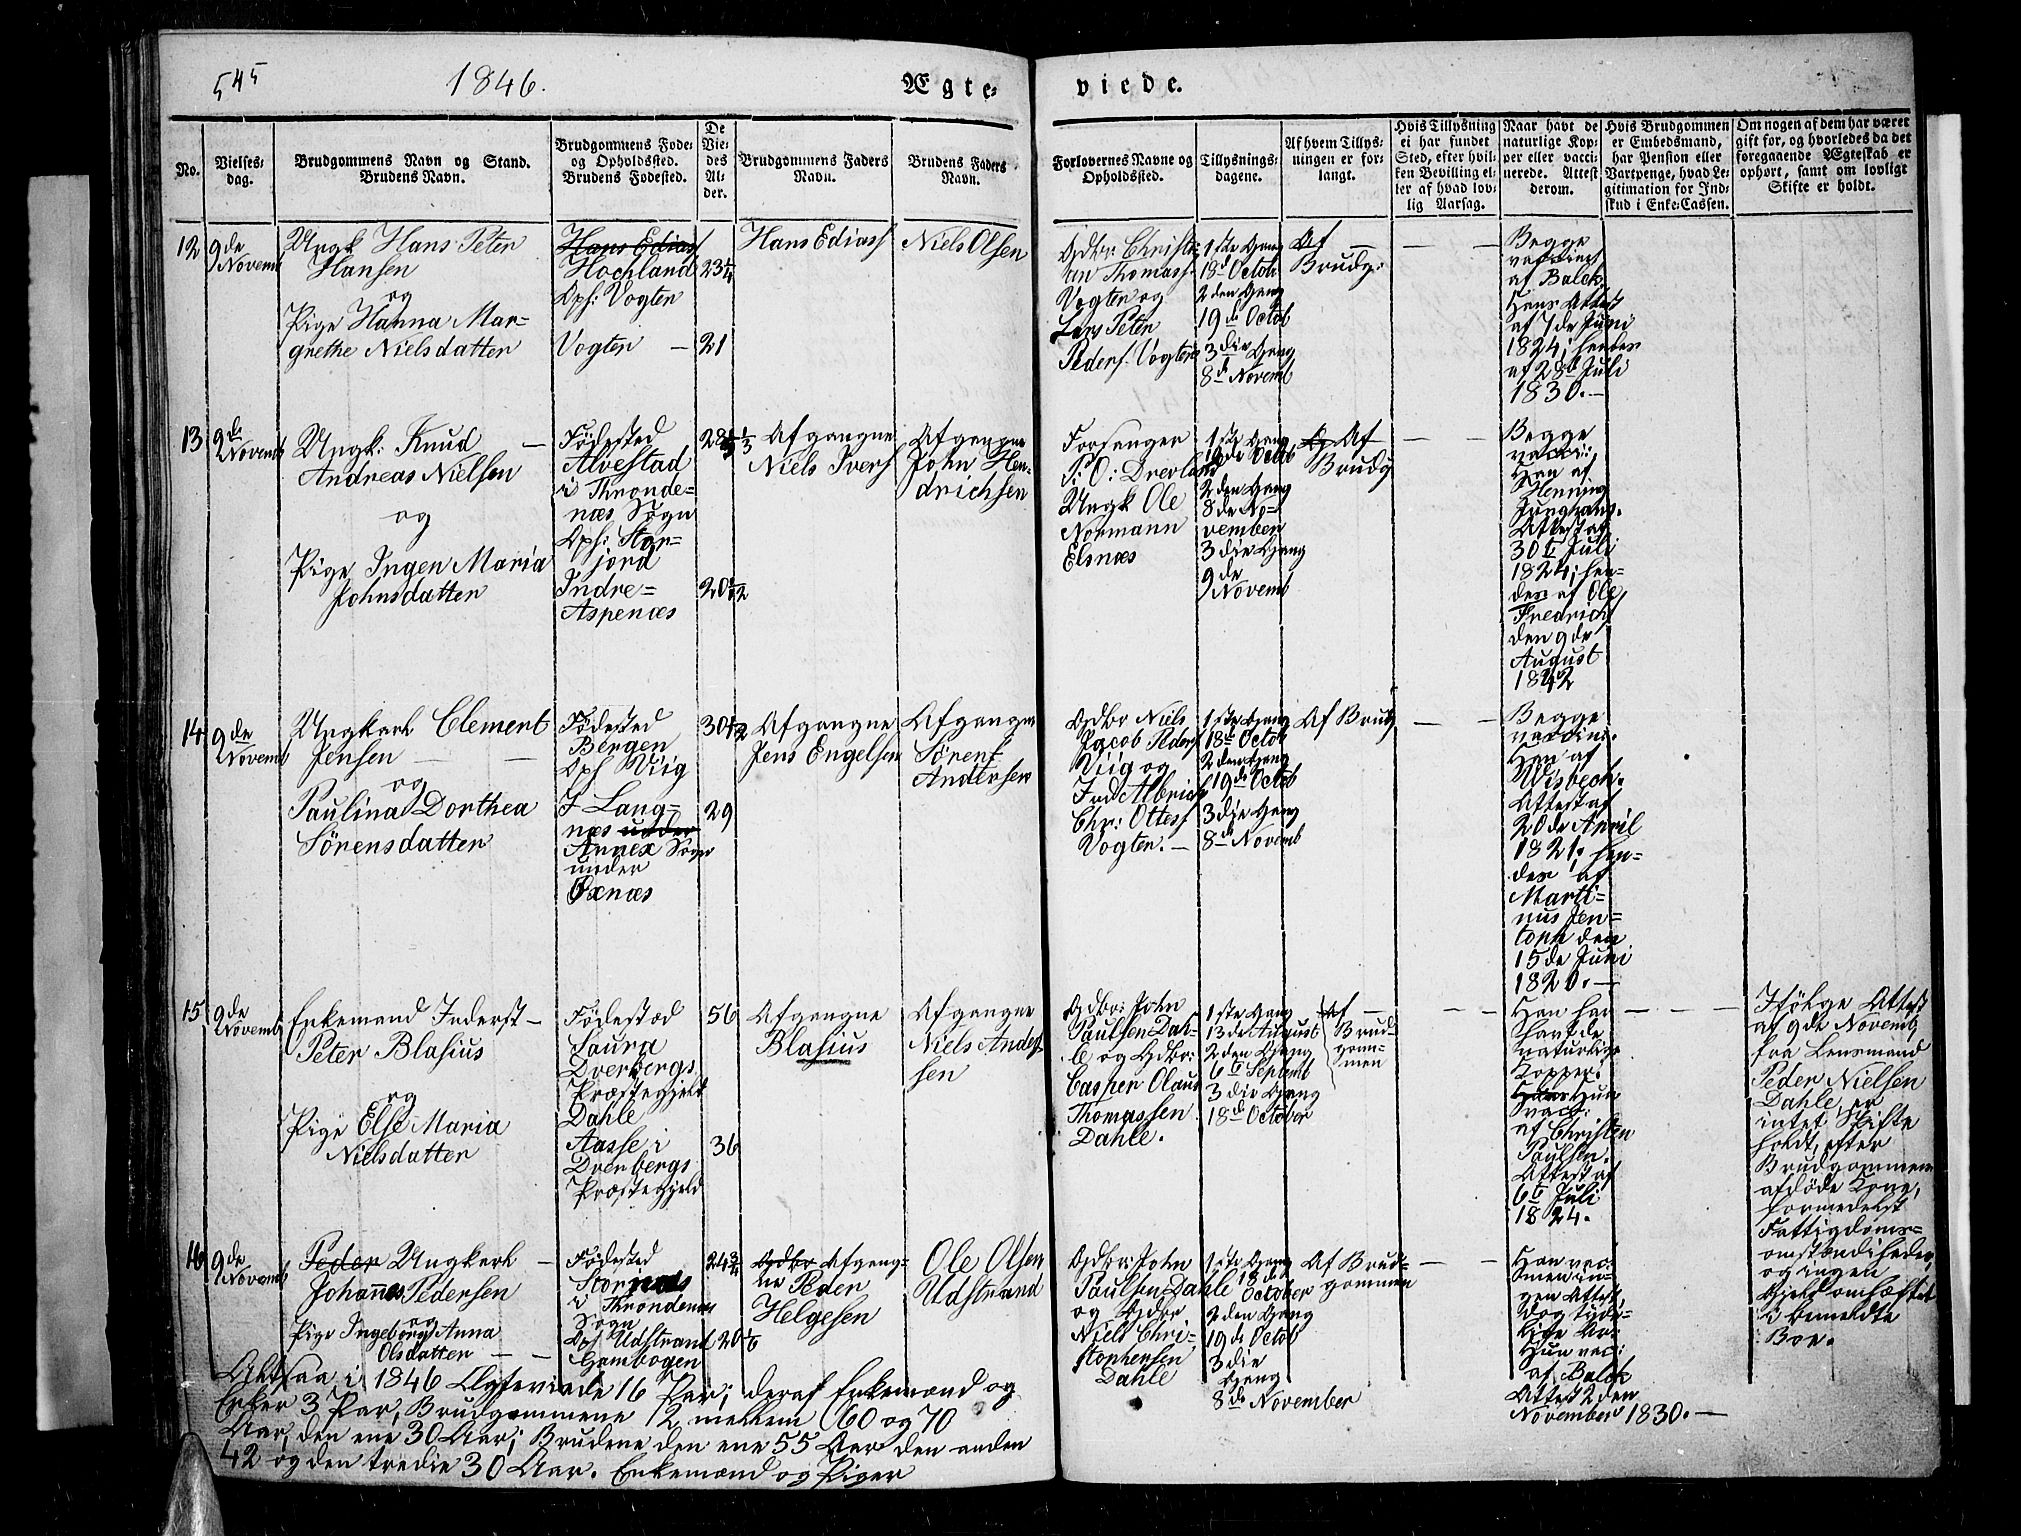 545
1846.
Ægte-
viede.
No.
Vielses-
dag.
Brudgommens Navn og Stand.
Brudens Navn.
Brudgommens Føde-
og Opholdssted.
Brudens Fødested.
De
Vie-
des
Al-
der.
Brudgommens Faders
Navn.
Brudens Faders
Navn.
Forlovernes Navne og
Opholdssted.
Tillysnings-
dagene.
Af hvem Tillys-
ningen er for-
langt.
Hvis Tillysning
ei har fundet
Sted, efter hvil-
ken Bevilling el-
ler af hvad lov-
lig Aarsag.
Naar havt de
naturlige Kop-
per eller vacci-
nerede. Attest
derom.
Hvis Brudgommen
er Embedsmand,
har Pension eller
Vartpenge, hvad Le-
gitimation for Ind-
skud i Enke-Cassen.
Om nogen af dem har været
gift for, og hvorledes da det
foregaaende Ægteskab er
ophørt, samt om lovligt
Skifte er holdt.
12
9de
Novemb
Ungk Hans Peter
Hansen
og
Pige Hanna Mar=
grethe Nielsdatter
Hans Edias
Hochland
Oph: Vogter
Vogter —
23 1/4
21
Hans Ediass
Niels Olsen
Gdbr: Christi=
an Thomass
Vogter og
Lars Peter
Peders Vogter
1ste Gang
18d Octob
2den Gang
19de Octob
3die Gang
8d Novemb
Af —
Brudg:
Begge
vaccines
af Balck.
Hans Attest
af 7de Juni
1824; hendes
af 28d Juli
1830. —
13
9de
Novemb
Ungk: Knud —
Andreas Nielsen
og
Pige Ingen Maria
Johnsdatter
Fødested
Alvestad
i Tronde=
næs Sogn
Oph: Stor=
jord
Indre=
Aspenæs
28 1/3
Afgangne
Niels Ivers
Afgangne
John Hen=
drichsen
Forsanger
P: O: Drevland
Ungk Ole
Normann
Elsnæs
1ste Gang
19de Octob
2den Gang
8de No=
vember
3die Gang
9de
Novemb
Af
Brudg
Begge
vacci:
Han af
Henning
Junghans.
Attest af
30te Juli
1824; hen=
des af Ole
Fredrich
den 9de
August
1842
14
9de
Novemb
Ungkarl Clement
Jensen — —
og
Paulina Dorthea
Sörensdatter
Fødested
Bergen
Oph Viig
I Lang=
næs under
Annex Sogn
under
Öxnæs
30 1/2
29
Afgangne
Jens Engelsen
Afgangne
Sörens
Andersen
Gdbr Niels
Jacob Peders
Viig og
Chr: Ottess
Vogter. —
1ste Gang
18de Octob
2den Gang
19de Octob
3die Gang
8de Novemb
Af Brudg
Begge
vaccin:
Han af
Wisbech.
Attest af
20de April
1821; hen=
des af
Marti=
nus Jen=
toph den
15de Juni
1820. —
15
9de
Novemb
Enkemand Inderst —
Peter Blasius
og
Pige Else Maria
Nielsdatter
Fødested
Saura
Dverbergs
Præstegjeld
Dahle
Aasse i
Dverbergs
Præstegjeld
56
36
Afgangne
Blasius
Afgangne
Niels Anders
sen
Gdbr: John
Paulsen Dah=
le og Gdbr:
Casper Olaus
Thomassen
Dahle.
1ste Gang
13de August
2den Gang
6te Septemb
3die Gang
18de October
Af —
Brud=
gom=
men
Han har
havt de
naturlige
Kopper.
Hans Hun
vacc:
af Christen
Paulsen.
Attest af
6te Juli
1824.
Ifölge Attest
af 9de Novemb
fra Lensmand
Peder Nielsen
Dahle, er
intet Skifte
holdt, efter
Brudgommens
afdöde Kone,
formedelst
Fattigdoms=
omstændigheder
og ingen
Gield omhæftet
i bemeldte
Boe.
16
9de
Novemb
Peder Ungkarl —
Johannes Pedersen
og
Pige Ingeborg Anna
Olsdatter — —
Fødested
Stornæs
i Trondenæs
Sogn
Oph Udstrand
Gambogen
24 3/4
20 1/6
Gdbr Afgang=
ne Peder
Helgesen
Ole Olsen
Udstrand
Gdbr: John
Paulsen Dahle
og Gdbr
Niels Chri=
stophersen
Dahle
1ste Gang
18de
October
2den Gang
19de Octob
3die
Gang
8de November
Af Brud=
gommen
Han vac:
men in=
gen Attest,
dog tyde=
lige Ar.
Hun vac:
af Balck
Attest 2den
November 1830. —
Altsaa i 1846 Egteviede 16 Par; deraf Enkemænd og
Enker 3 Par, Brudgommene 2 mellem 60 og 70
Aar, den ene 30 Aar; Brudene den ene 55 Aar den anden
42 og den tredie 30 Aar. Enkemænd og Piger